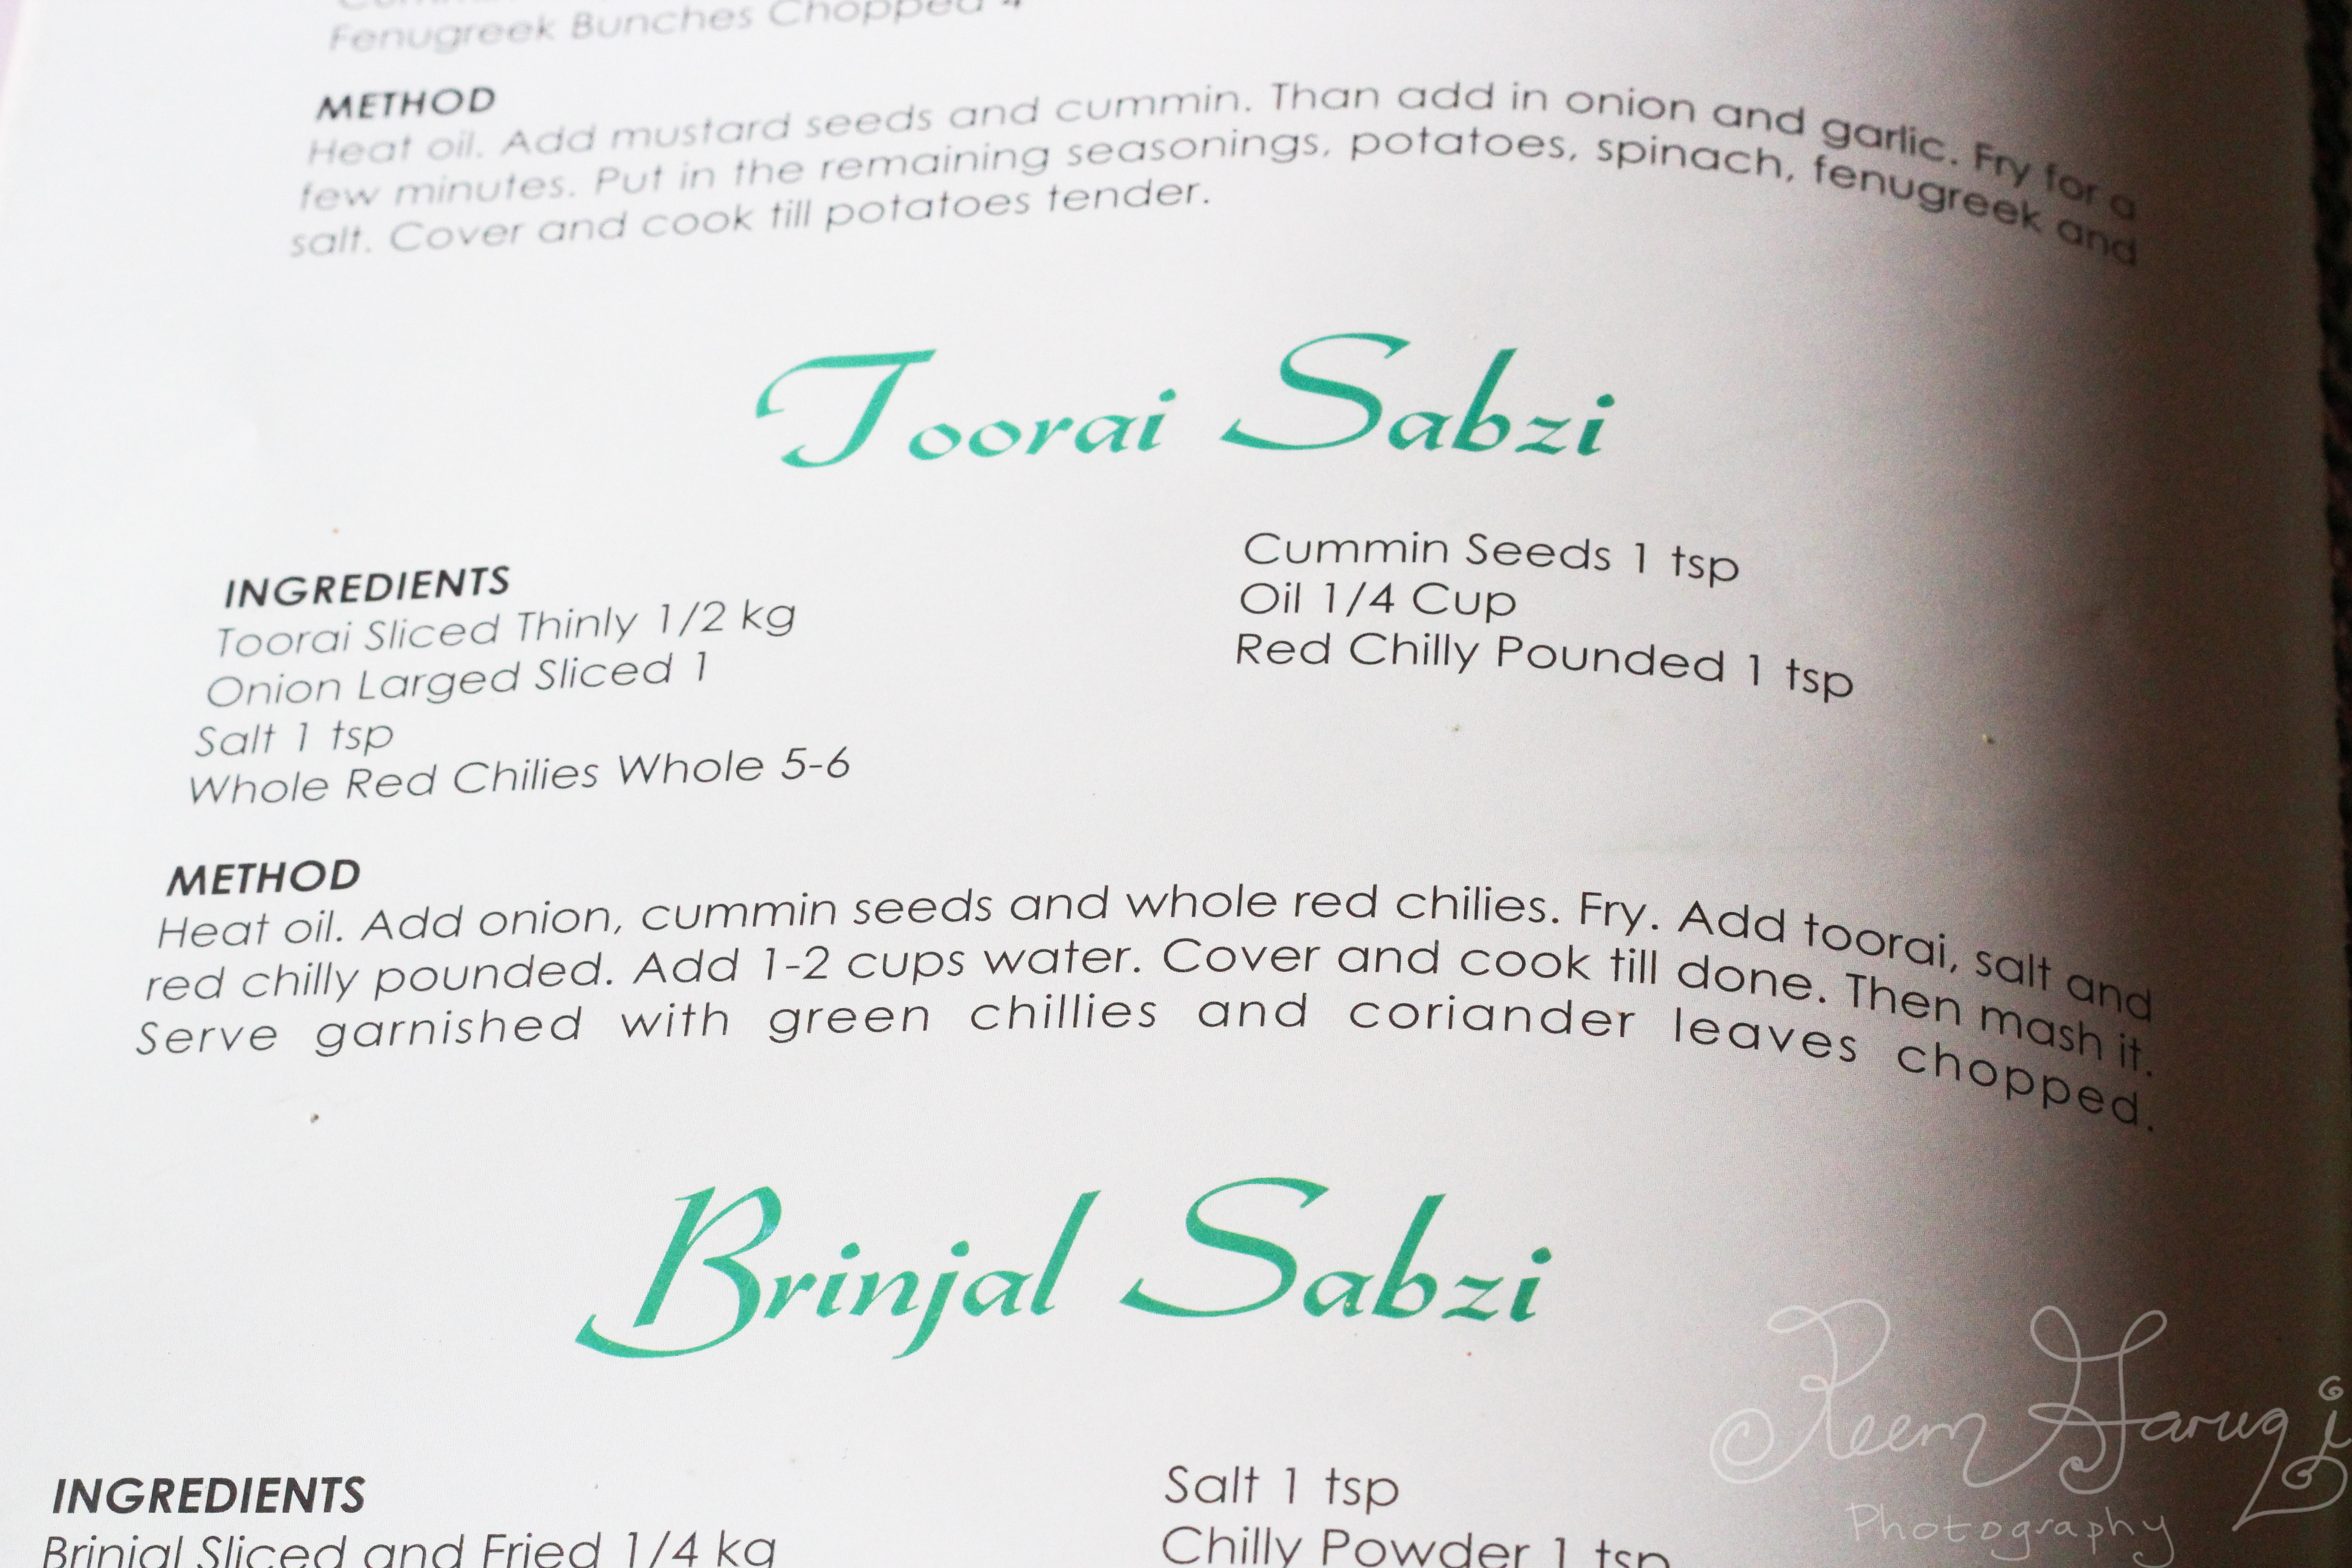 Fenugreek Bunches Chopped 4
METHOD
Heat oil. Add mustard seeds and cummin. Than add in onion and garlic. Fry for a
few minutes. Put in the remaining seasonings, potatoes, spinach, fenugreek and
salt. Cover and cook till potatoes tender.
Toorai Sabzi
INGREDIENTS
Toorai Sliced Thinly 1/2 kg
Onion Larged Sliced 1
Salt 1 tsp
Whole Red Chilies Whole 5-6
Cummin Seeds 1 tsp
Oil 1/4 Cup
Red Chilly Pounded 1 tsp
METHOD
Heat oil. Add onion, cummin seeds and whole red chilies. Fry. Add toorai, salt and
red chilly pounded. Add 1-2 cups water. Cover and cook till done. Then mash it.
Serve garnished with green chillies and coriander leaves chopped.
Brinjal Sabzi
INGREDIENTS
Brinjal Sliced and Fried 1/4 kg
Salt 1 tsp
Chilly Powder 1 tsp
Reem Faruqi
Photography